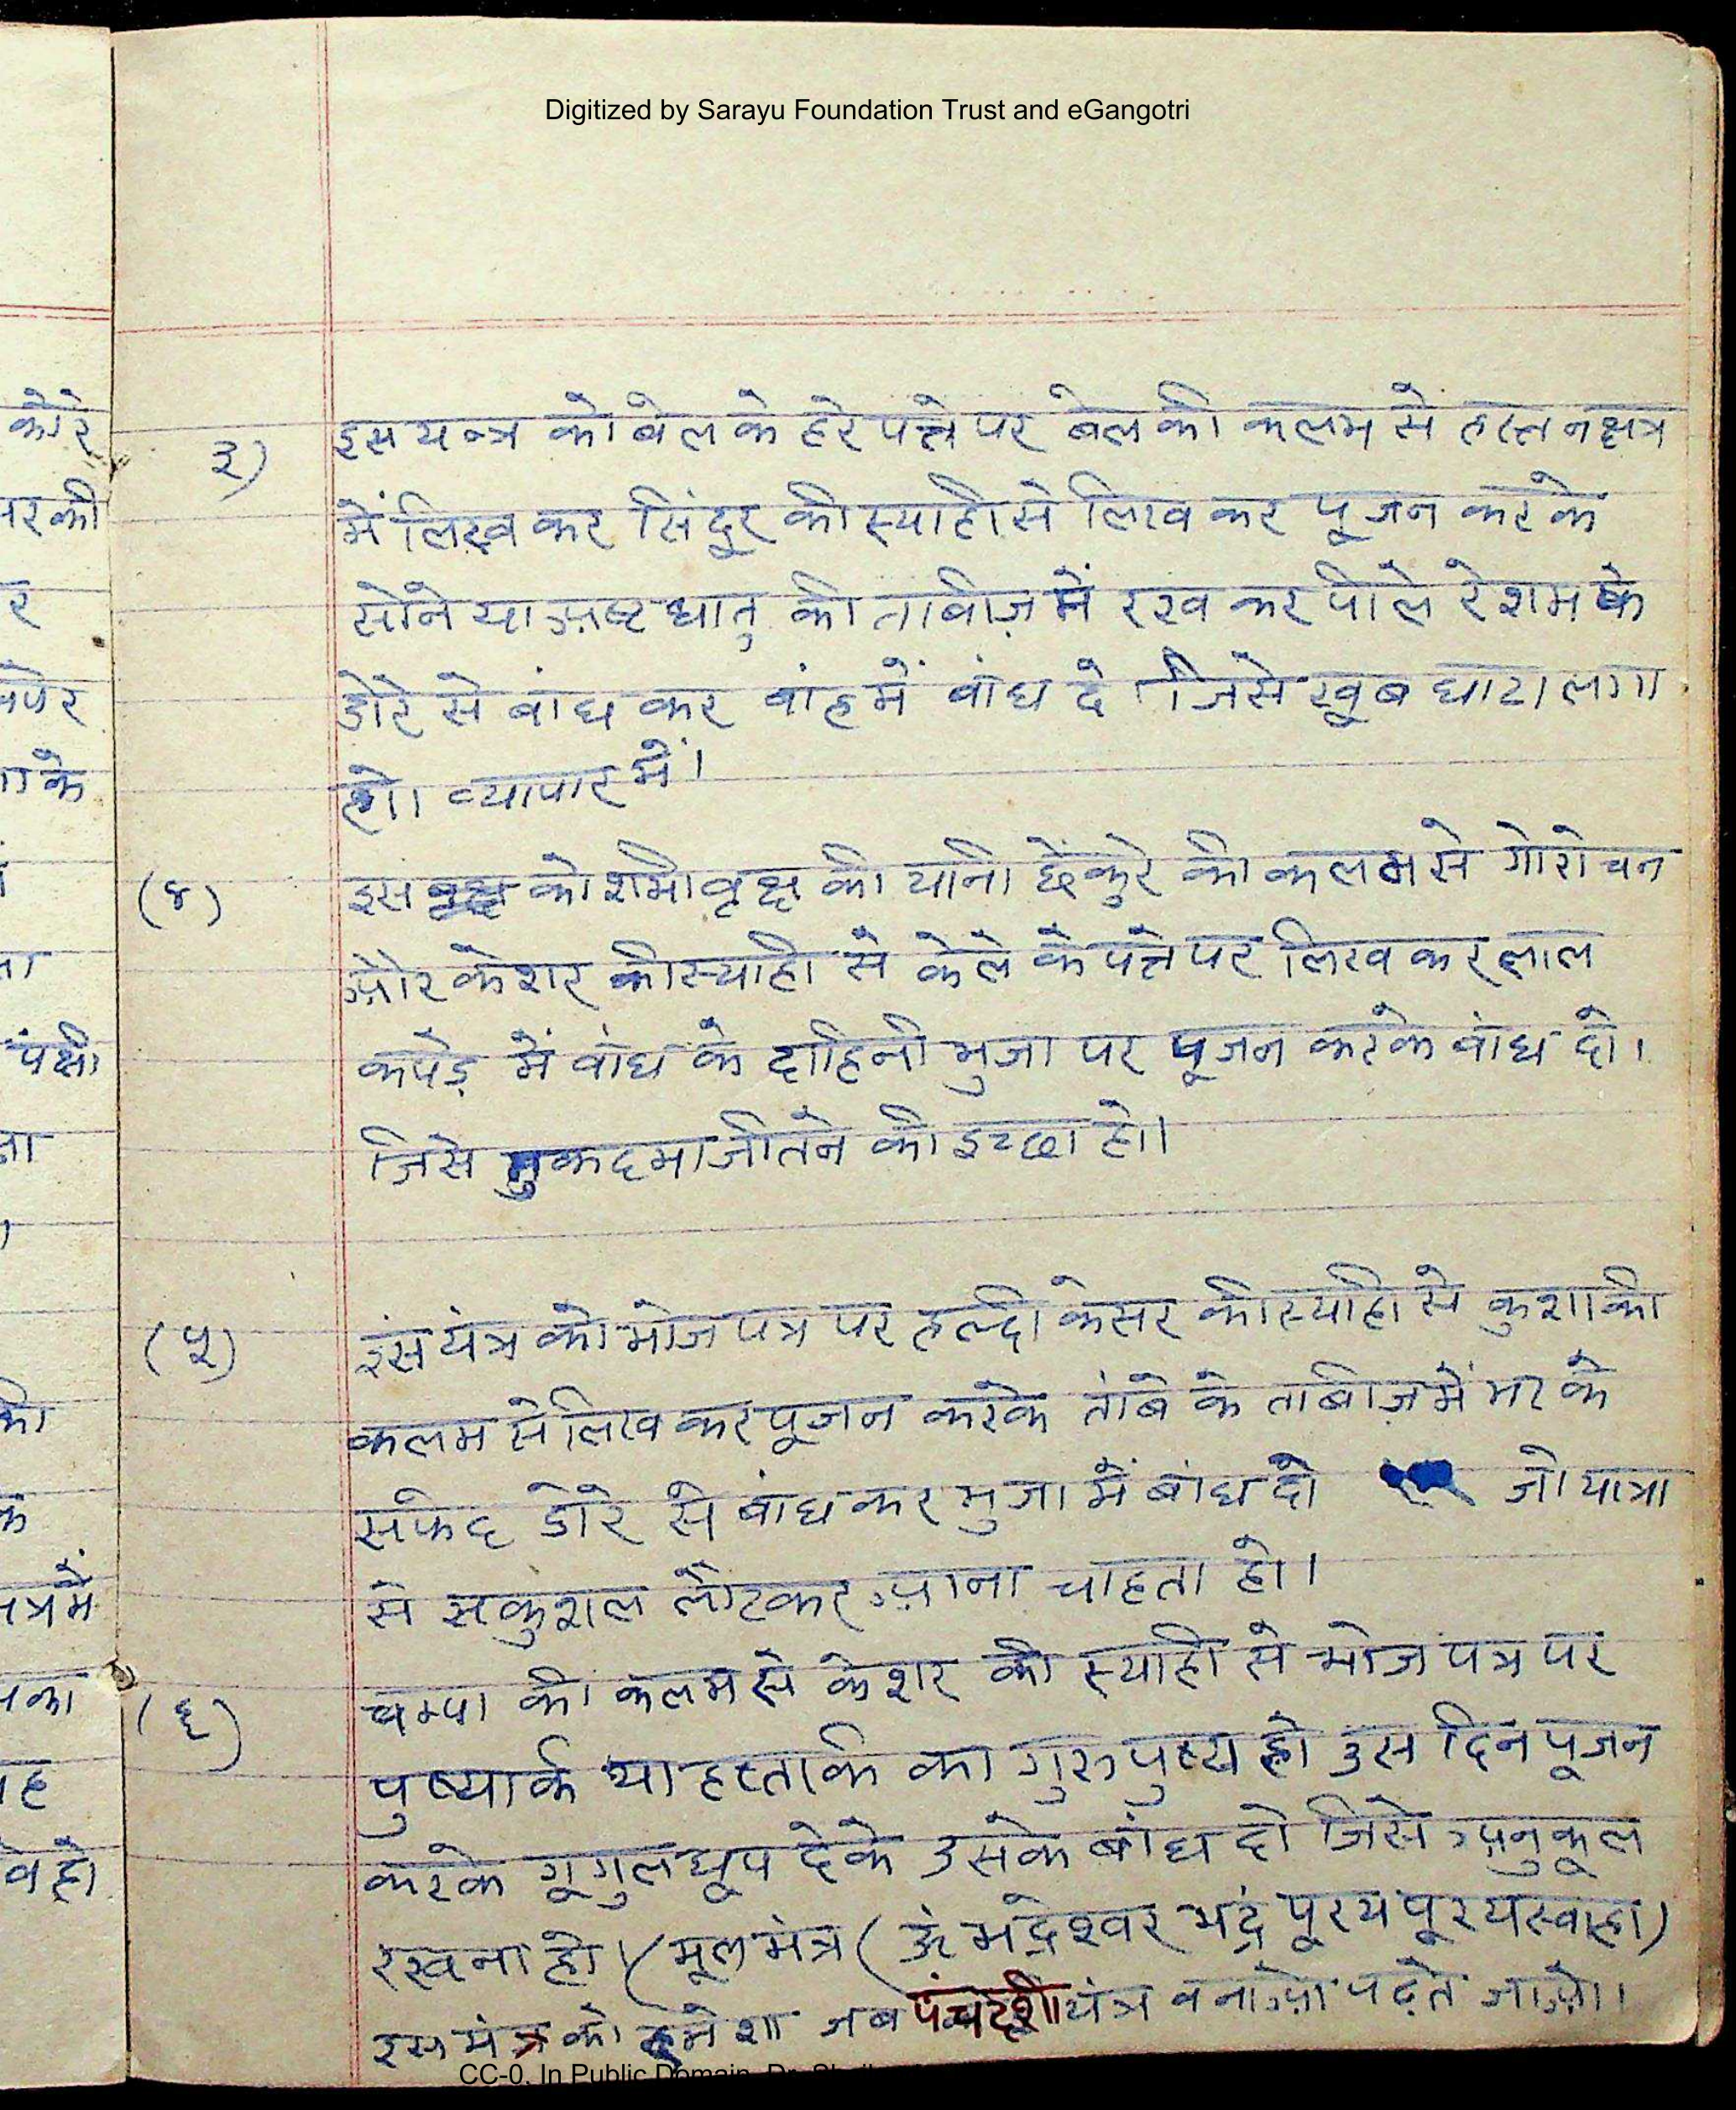 Digitized by Sarayu Foundation Trust and eGangotri
३) इस यन्त्र को बेल के हरे पत्ते पर बेल की कलम से हस्त नक्षत्र
में लिख कर सिंदूर की स्याही से लिख कर पूजन करके
सोने या अष्ट धातु की ताबीज़ में रख कर पीले रेशम के
डोरे से बांध कर बांह में बांध दे जिसे खूब घाटा लगा
हो। व्यापार में।
(४) इस को शमी वृक्ष की यानी छेंकुरे की कलम से गोरोचन
और केशर की स्याही से केले के पत्ते पर लिख कर लाल
कपड़े में बांध के दाहिनी भुजा पर पूजन करके बांध दो।
जिसे मुकदमा जीतने की इच्छा हो।
(५) इस यंत्र को भोज पत्र पर हल्दी केसर की स्याही से कुशा की
कलम से लिख कर पूजन करके तांबे के ताबीज़ में भर के
सफेद डोरे से बांध कर भुजा में बांध दो जो यात्रा
से सकुशल लौटकर आना चाहता हो।
(६) चम्पा की कलम से केशर की स्याही से भोज पत्र पर
पुष्यार्क या हस्तार्क का गुरु पुष्य हो उस दिन पूजन
करके गूगुल धूप देके उसके बांध दो जिसे अनुकूल
रखना हो। (मूल मंत्र (ऊं भद्रेश्वर भद्रं पूरय पूरय स्वाहा)
इस मंत्र को हमेशा जब पंचदशी यंत्र बनाओ पढ़ते जाओ।
कोरे
र की
र
के
पक्षी
की
त्र में
का
ह
CC-0. In Public Domain. Dr.